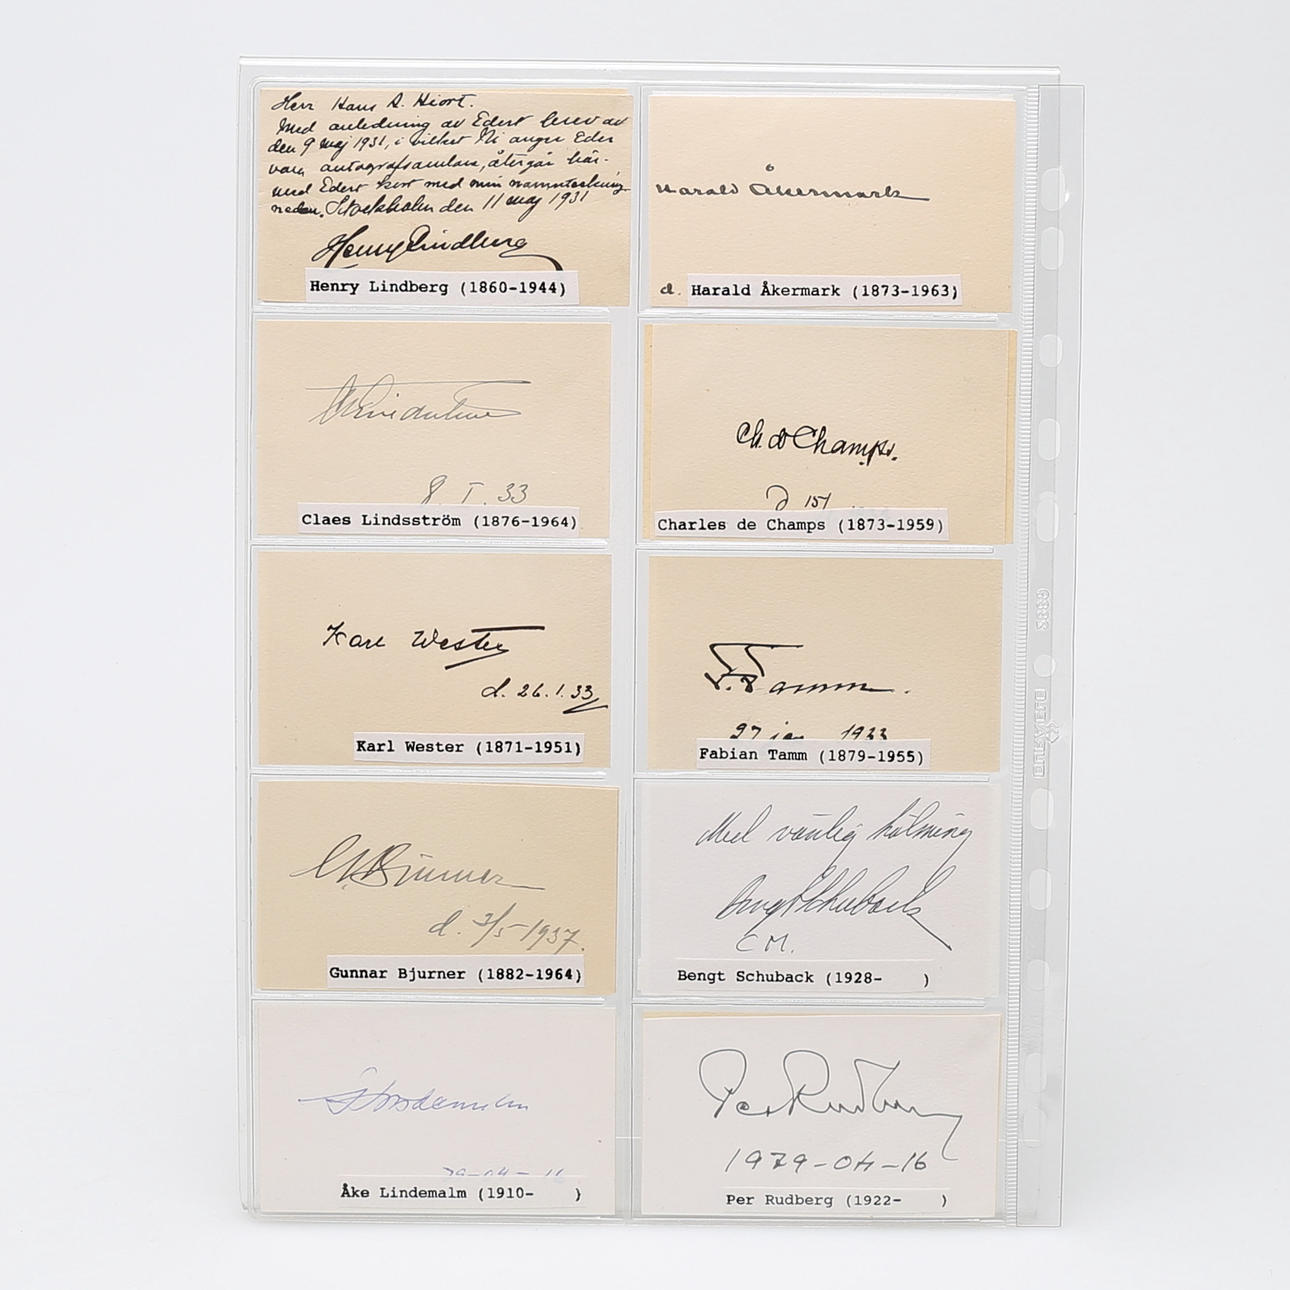 Herr Hans A. Hiort.
Med anledning av Edert brev av
den 9 maj 1931, i vilket Ni anger Eder
vara autografsamlare, återgår här-
med Edert kort med min namnteckning
nedan. Stockholm den 11 maj 1931
Henry Lindberg
Henry Lindberg (1860-1944)
Harald Åkermark
d. Harald Åkermark (1873-1963)
8 I. 33
Claes Lindsström (1876-1964)
Ch. de Champs.
Charles de Champs (1873-1959)
Karl Wester
d. 26.1.33
Karl Wester (1871-1951)
F. Tamm.
27 jan 1933
Fabian Tamm (1879-1955)
G. Bjurner
d. 3/5-1937.
Gunnar Bjurner (1882-1964)
Med vänlig hälsning
Bengt Schuback
CM.
Bengt Schuback (1928- )
Åke Lindemalm
79-04-16
Åke Lindemalm (1910- )
Per Rudberg
1979-04-16
Per Rudberg (1922- )